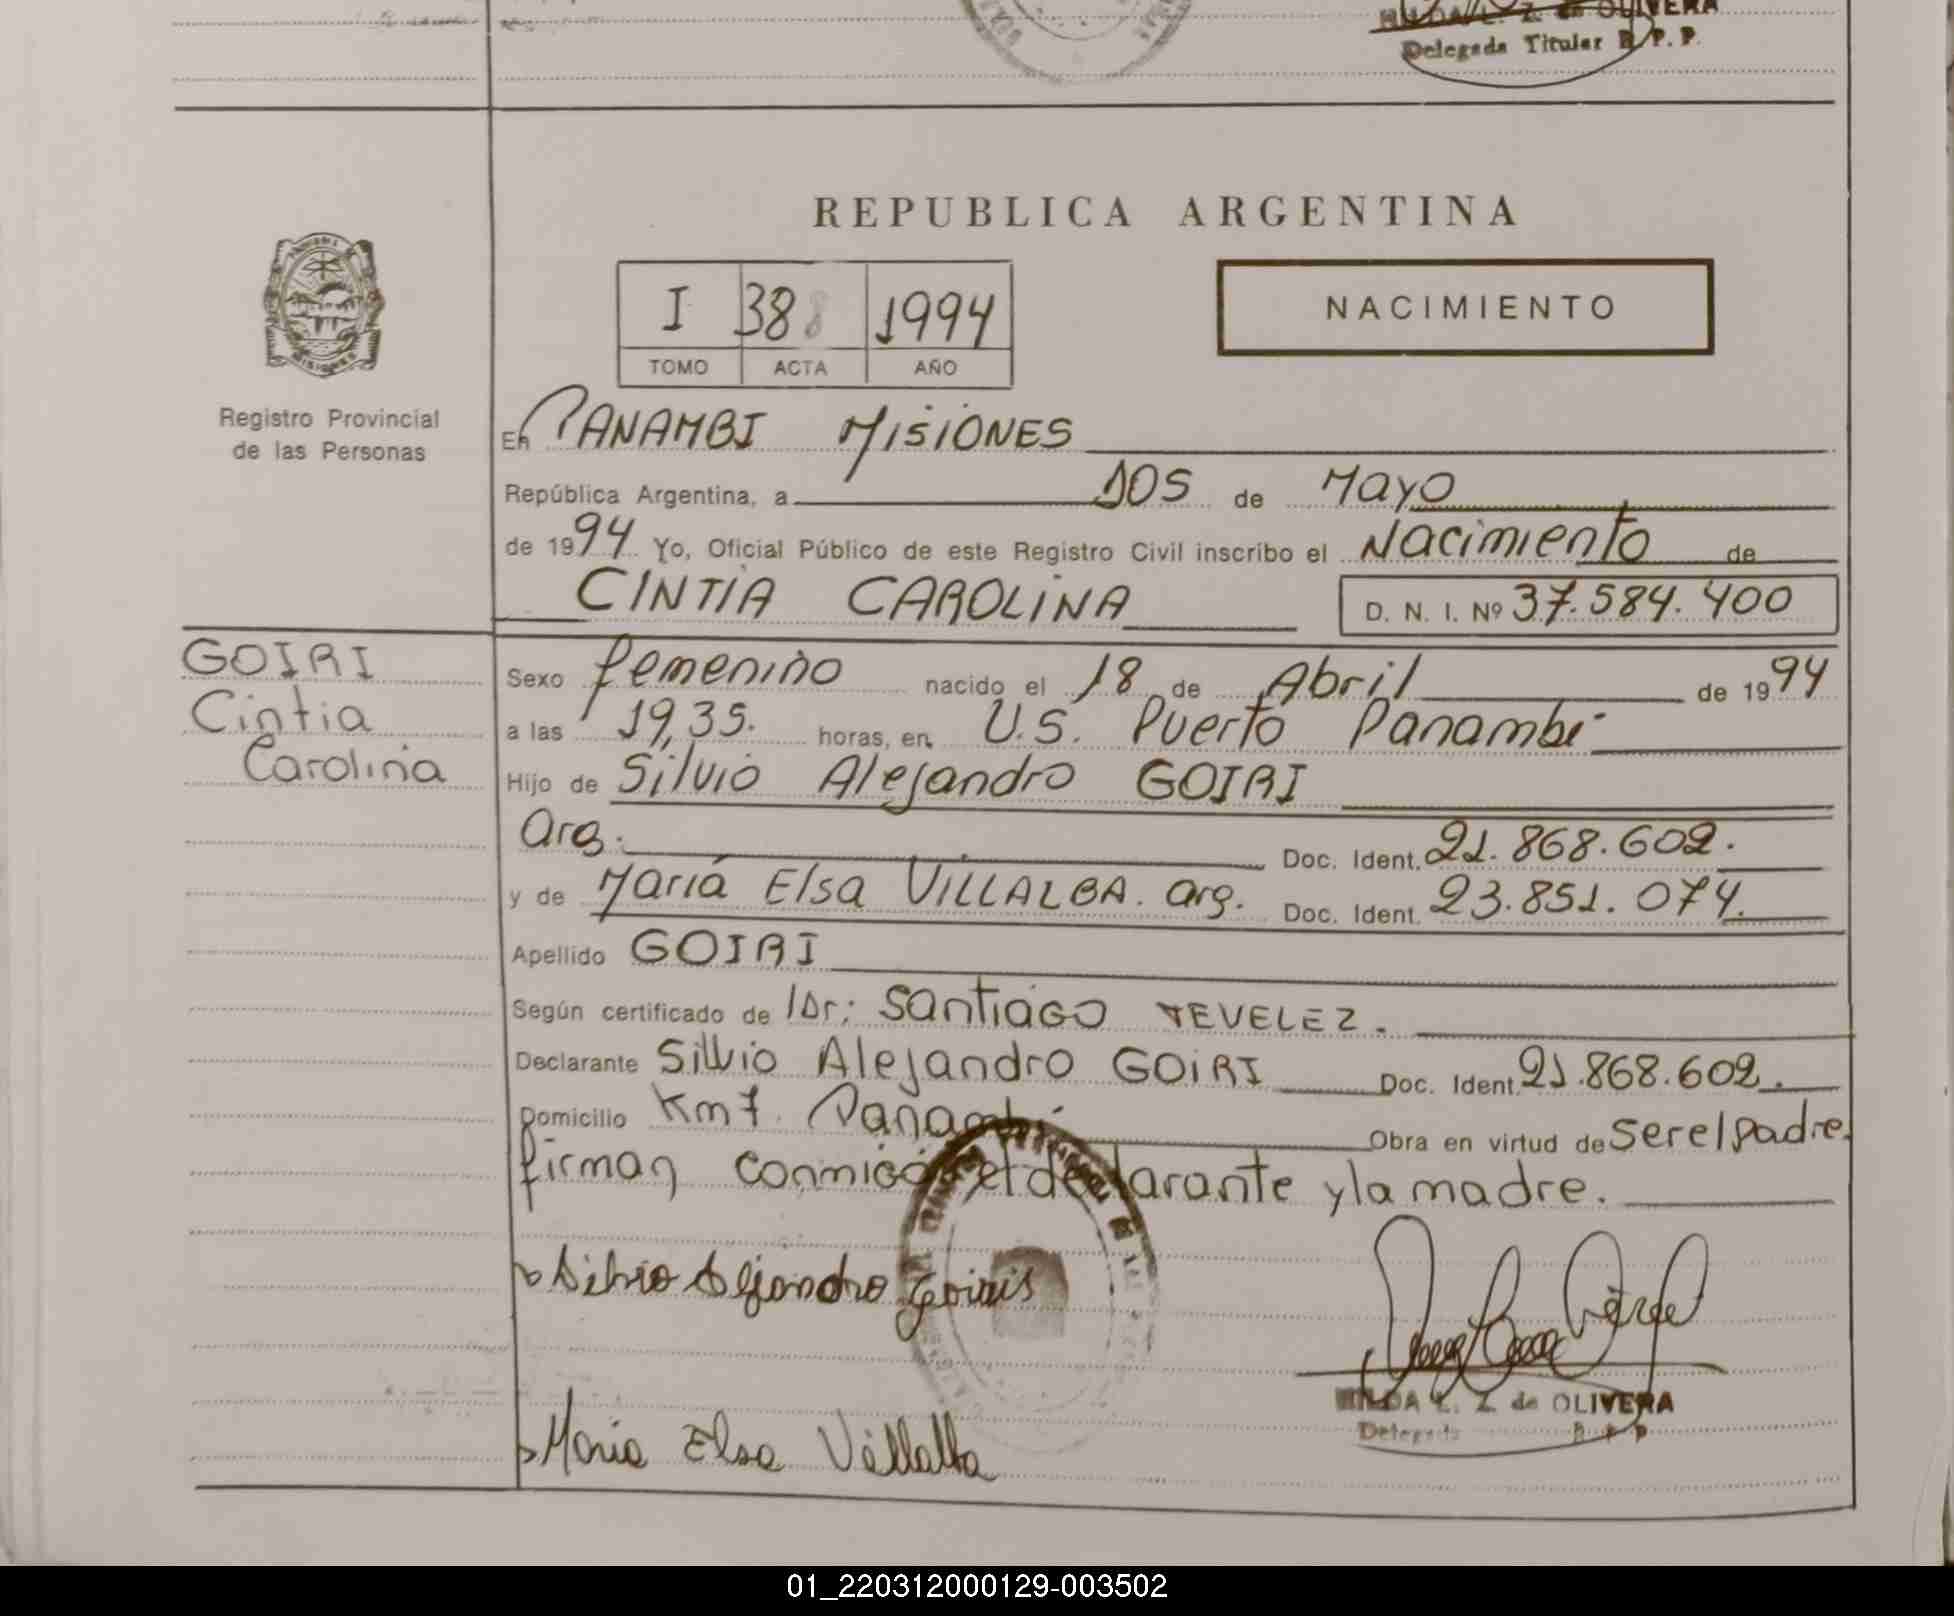 HILDA L. Z. de OLIVERA
Delegada Titular R.P.P.
REPUBLICA ARGENTINA
I 38 1994
TOMO ACTA AÑO
NACIMIENTO
MISIONES
Registro Provincial
de las Personas
En PANAMBI MISIONES
República Argentina, a DOS de Mayo
de 1994 Yo, Oficial Público de este Registro Civil inscribo el Nacimiento de
CINTIA CAROLINA D. N. I. Nº 37.584.400
GOIRI
Cintia
Carolina
Sexo femenino nacido el 18 de Abril de 1994
a las 19,35. horas, en U.S. Puerto Panambi
Hijo de Silvio Alejandro GOIRI
Arg. Doc. Ident. 21.868.602.
y de María Elsa VILLALBA. arg. Doc. Ident. 23.851.074.
Apellido GOIRI
Según certificado de Dr: Santiago TEVELEZ.
Declarante Silvio Alejandro GOIRI Doc. Ident. 21.868.602.
Domicilio Km 7. Panambí Obra en virtud de ser el padre.
firman conmigo el declarante y la madre.
Silvio Alejandro Goiris
HILDA L. Z. de OLIVERA
Delegada R P P
Maria Elsa Villalba
01_220312000129-003502